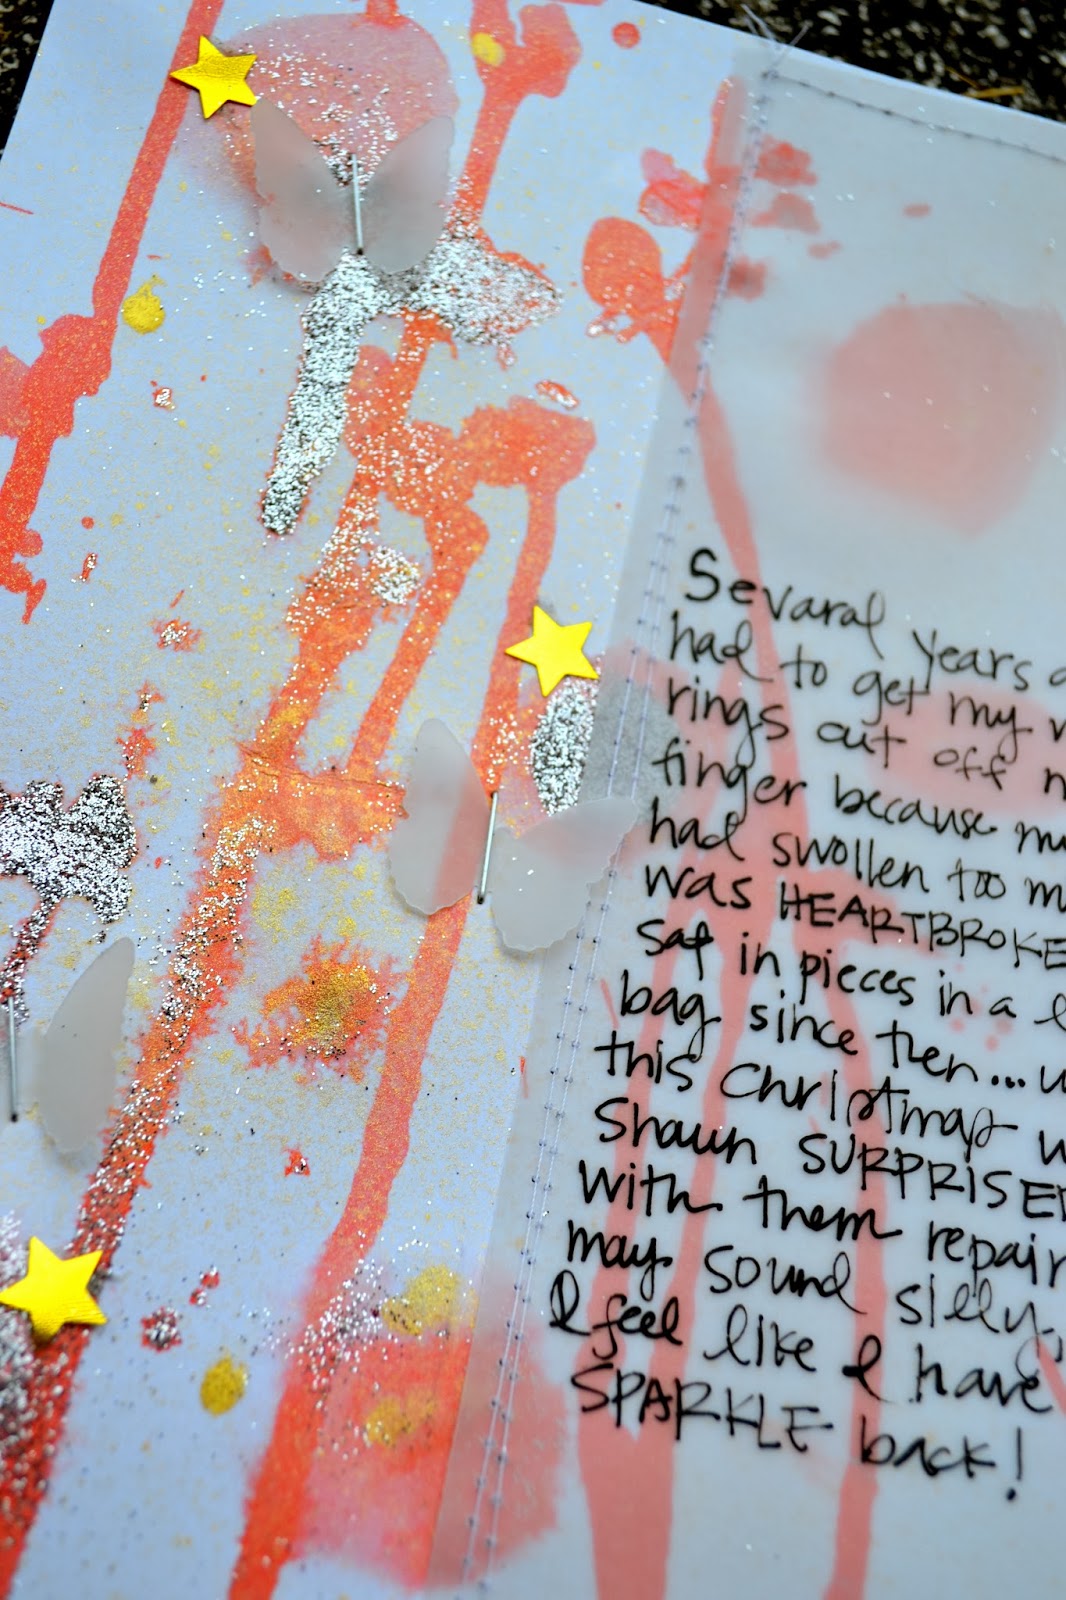 Sevaral years a
had to get my w
rings cut off m
finger because my
had swollen too m
was HEARTBROKE
sat in pieces in a l
bag since then...u
this Christmas w
Shaun SURPRISED
with them repair
may sound silly,
I feel like I have
SPARKLE back!